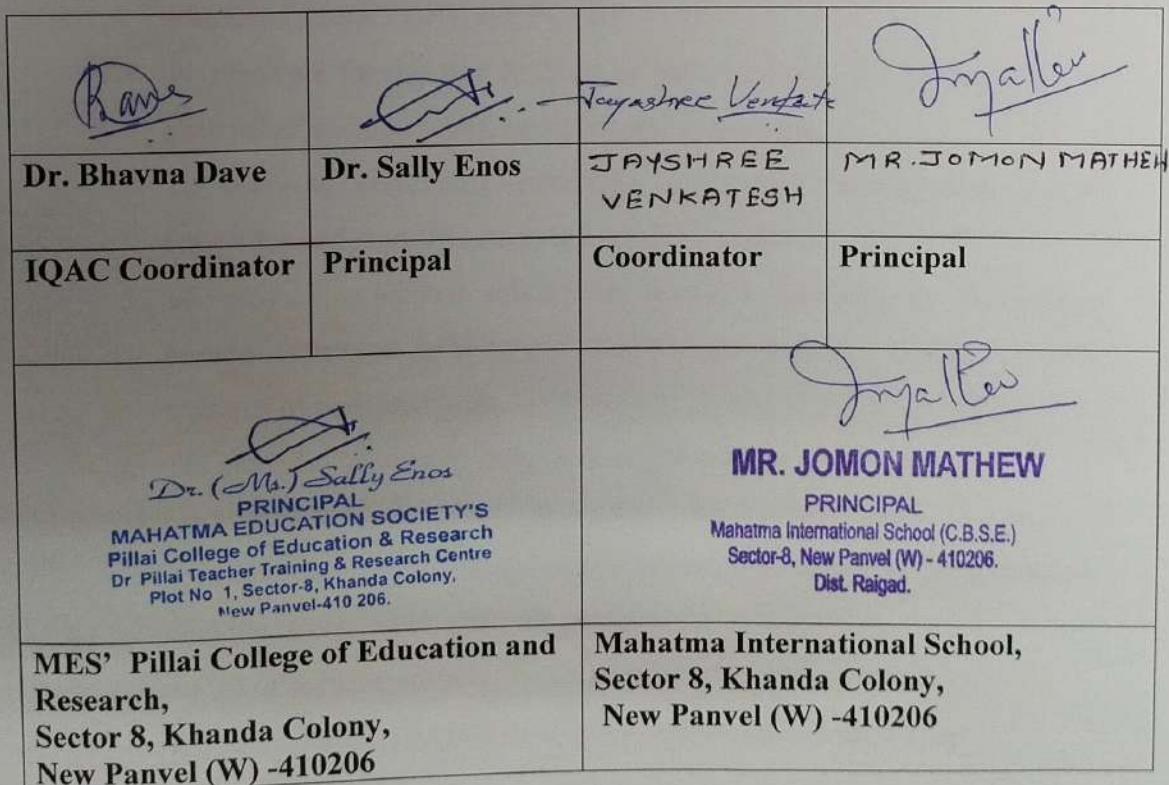 Jayashree
Dr. Bhavna Dave
Dr. Sally Enos
JAYSHREE
VENKATESH
MR. JOMON MATHEW
IQAC Coordinator
Principal
Coordinator
Principal
Dr. (Ms.) Sally Enos
PRINCIPAL
MAHATMA EDUCATION SOCIETY'S
Pillai College of Education & Research
Dr Pillai Teacher Training & Research Centre
Plot No 1, Sector-8, Khanda Colony,
New Panvel-410 206.
MR. JOMON MATHEW
PRINCIPAL
Mahatma International School (C.B.S.E.)
Sector-8, New Panvel (W) - 410206.
Dist. Raigad.
MES' Pillai College of Education and
Research,
Sector 8, Khanda Colony,
New Panvel (W) -410206
Mahatma International School,
Sector 8, Khanda Colony,
New Panvel (W) -410206